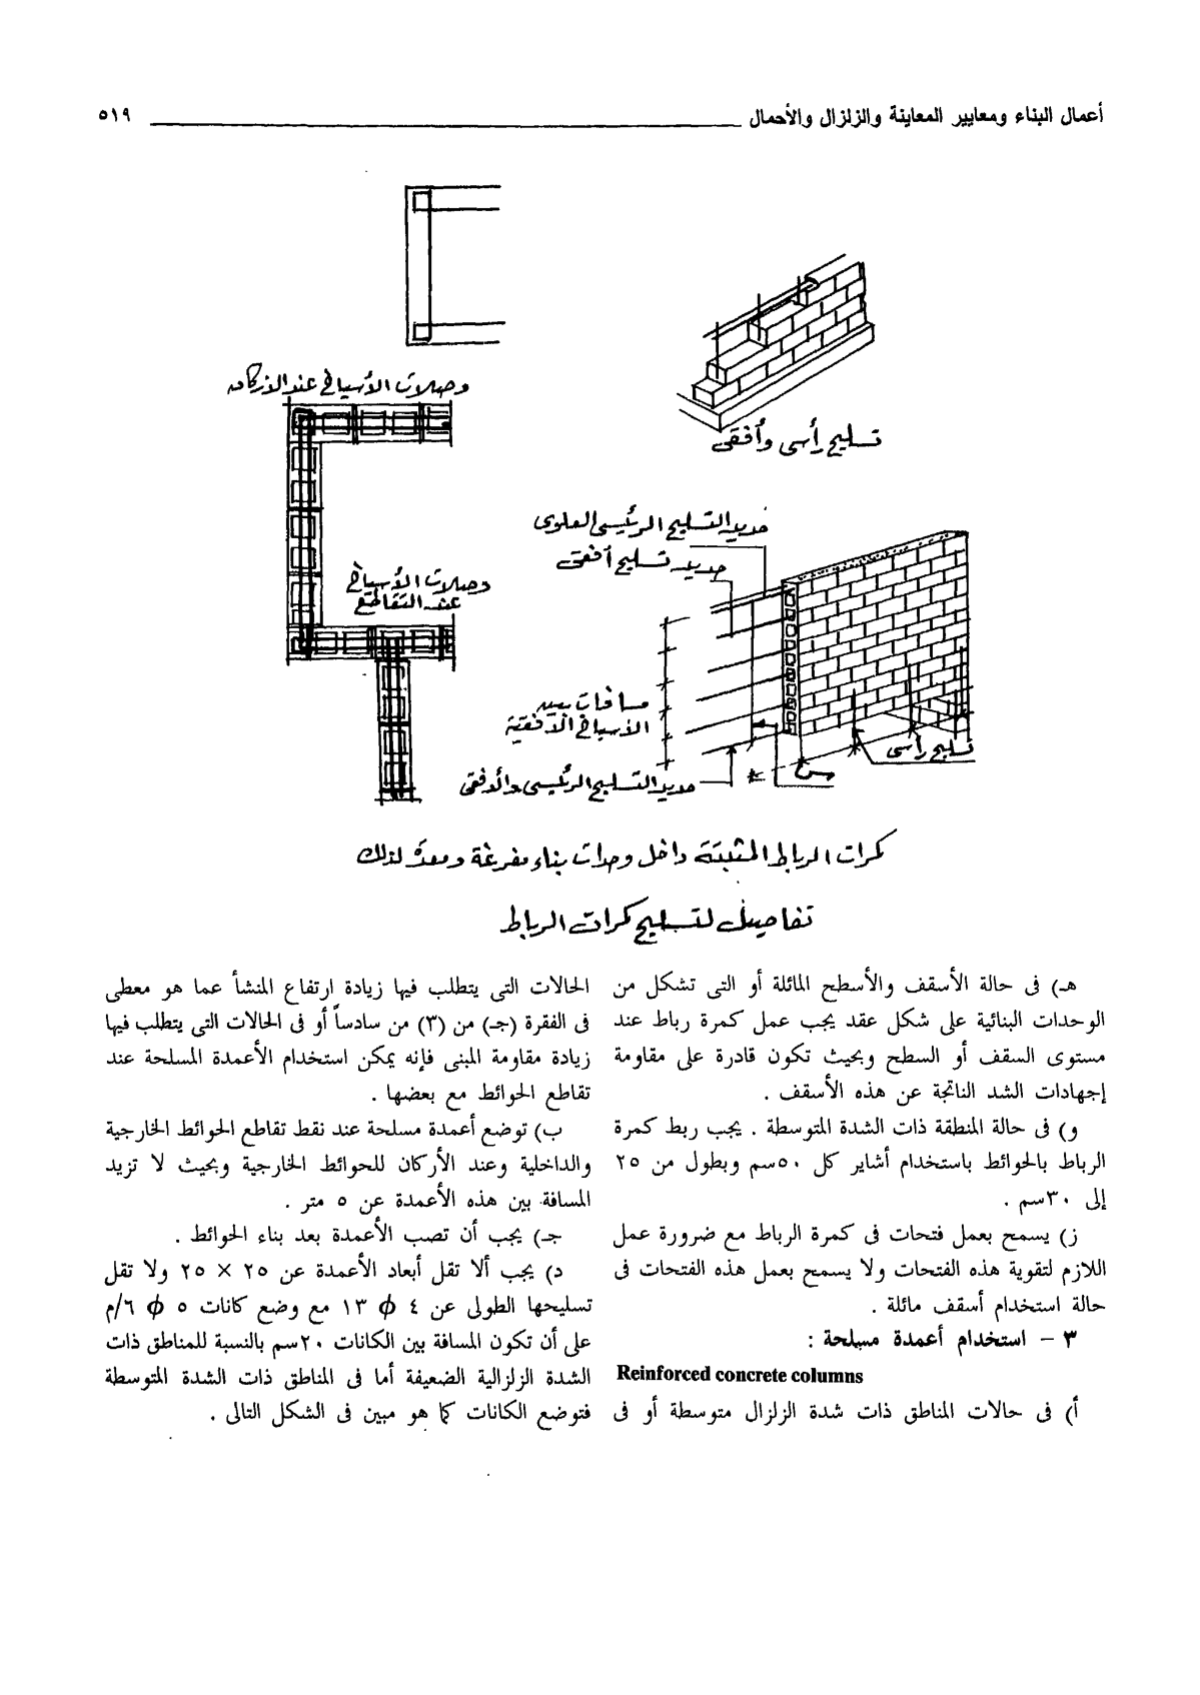 أعمال البناء ومعايير المعاينة والزلزال والأحمال ٥١٩
وصلات الأسياخ عند الأركان
تسليح رأسى وأفقى
حديد التسليح الرئيسى العلوى
حديد تسليح أفقى
وصلات الأسياخ
عند التقاطع
مسافات بين
الأسياخ الأفقية
تسليح رأسى
حديد التسليح الرئيسى والأفقى
كمرات الرباط المثبتة داخل وحدات بناء مفرغة ومعدة لذلك
تفاصيل لتسليح كمرات الرباط
هـ) فى حالة الأسقف والأسطح المائلة أو التى تشكل من
الوحدات البنائية على شكل عقد يجب عمل كمرة رباط عند
مستوى السقف أو السطح وبحيث تكون قادرة على مقاومة
إجهادات الشد الناتجة عن هذه الأسقف .
و) فى حالة المنطقة ذات الشدة المتوسطة . يجب ربط كمرة
الرباط بالحوائط باستخدام أشاير كل ٥٠سم وبطول من ٢٥
إلى ٣٠سم .
ز) يسمح بعمل فتحات فى كمرة الرباط مع ضرورة عمل
اللازم لتقوية هذه الفتحات ولا يسمح بعمل هذه الفتحات فى
حالة استخدام أسقف مائلة .
٣ – استخدام أعمدة مسلحة :
Reinforced concrete columns
أ) فى حالات المناطق ذات شدة الزلزال متوسطة أو فى
الحالات التى يتطلب فيها زيادة ارتفاع المنشأ عما هو معطى
فى الفقرة (جـ) من (٣) من سادساً أو فى الحالات التى يتطلب فيها
زيادة مقاومة المبنى فإنه يمكن استخدام الأعمدة المسلحة عند
تقاطع الحوائط مع بعضها .
ب) توضع أعمدة مسلحة عند نقط تقاطع الحوائط الخارجية
والداخلية وعند الأركان للحوائط الخارجية وبحيث لا تزيد
المسافة بين هذه الأعمدة عن ٥ متر .
جـ) يجب أن تصب الأعمدة بعد بناء الحوائط .
د) يجب ألا تقل أبعاد الأعمدة عن ٢٥ × ٢٥ ولا تقل
تسليحها الطولى عن ٤ ϕ ١٣ مع وضع كانات ٥ ϕ ٦/م
على أن تكون المسافة بين الكانات ٢٠سم بالنسبة للمناطق ذات
الشدة الزلزالية الضعيفة أما فى المناطق ذات الشدة المتوسطة
فتوضع الكانات كما هو مبين فى الشكل التالى .